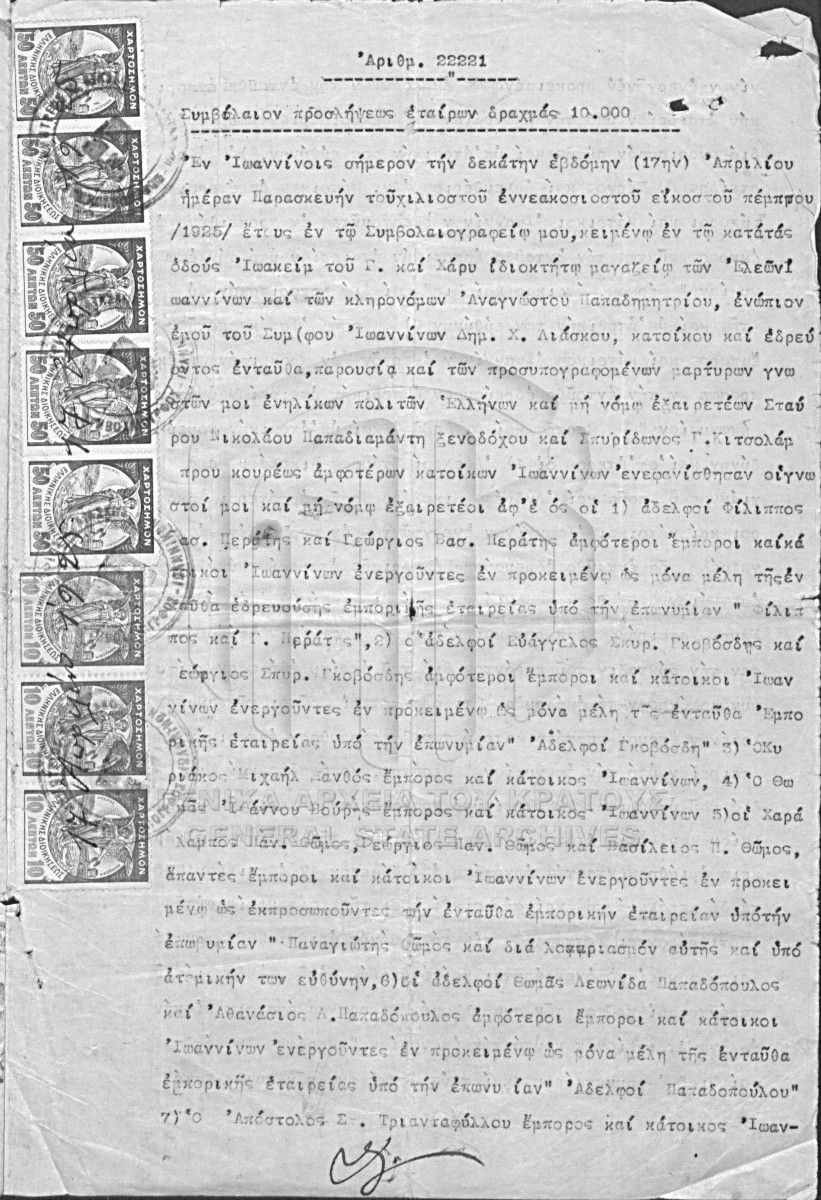 Ἀριθμ. 22221
Συμβόλαιον προσλήψεως ἑταίρων δραχμάς 10.000
Ἐν Ἰωαννίνοις σήμερον τήν δεκάτην ἑβδόμην (17ην) Ἀπριλίου
ἡμέραν Παρασκευήν τοῦχιλιοστοῦ ἐννεακοσιοστοῦ εἰκοστοῦ πέμπτου
/1925/ ἔτους ἐν τῷ Συμβολαιογραφείῳ μου,κειμένῳ ἐν τῷ κατάτάς
ὁδούς Ἰωακείμ τοῦ Γ. καί Χάρυ ἰδιοκτήτῳ μαγαζείῳ τῶν Ἐλεῶν Ἰ
ωαννίνων καί τῶν κληρονόμων Ἀναγνώστου Παπαδημητρίου, ἐνώπιον
ἐμοῦ τοῦ Συμ(φου Ἰωαννίνων Δημ. Χ. Λιάσκου, κατοίκου καί ἑδρεύ
οντος ἐνταῦθα,παρουσίᾳ καί τῶν προσυπογραφομένων μαρτύρων γνω
στῶν μοι ἐνηλίκων πολιτῶν Ἑλλήνων καί μή νόμῳ ἐξαιρετέων Σταύ
ρου Νικολάου Παπαδιαμάντη ξενοδόχου καί Σπυρίδωνος Γ.Κιτσολάμ
πρου κουρέως ἀμφοτέρων κατοίκων Ἰωαννίνων ἐνεφανίσθησαν οἱγνω
στοί μοι καί μή νόμῳ ἐξαιρετέοι ἀφ'ἑ ός οἱ 1) ἀδελφοί Φίλιππος
Βασ. Περάτης καί Γεώργιος Βασ. Περάτης ἀμφότεροι ἔμποροι καίκά
τοικοι Ἰωαννίνων ἐνεργοῦντες ἐν προκειμένῳ ὡς μόνα μέλη τῆςἐν
ταῦθα ἑδρευούσης ἐμπορικῆς ἑταιρείας ὑπό τήν ἐπωνυμίαν " Φίλιπ
πος καί Γ. Περάτης",2) οἱ ἀδελφοί Εὐάγγελος Σπυρ. Γκοβόσδης καί
εώργιος Σπυρ. Γκοβόσδης ἀμφότεροι ἔμποροι καί κάτοικοι Ἰωαν
νίνων ἐνεργοῦντες ἐν προκειμένῳ ὡς μόνα μέλη τῆς ἐνταῦθα Ἐμπο
ρικῆς ἑταιρείας ὑπό τήν ἐπωνυμίαν" Ἀδελφοί Γκοβόσδη" 3) ὉΚυ
ριάκος Μιχαήλ Πανθός ἔμπορος καί κάτοικος Ἰωαννίνων, 4) Ὁ Θω
μᾶς Ἰωάννου Βούρης ἔμπορος καί κάτοικος Ἰωαννίνων 5)οἱ Χαρά
λαμπος Παν. Θῶμος,Γεώργιος Παν. Θῶμος καί Βασίλειος Π. Θῶμος,
ἅπαντες ἔμποροι καί κάτοικοι Ἰωαννίνων ἐνεργοῦντες ἐν προκει
μένῳ ὡς ἐκπροσωποῦντες τήν ἐνταῦθα ἐμπορικήν ἑταιρείαν ὑπότήν
ἐπωνυμίαν " Παναγιώτης Θῶμος καί διά λογαριασμόν αὐτῆς καί ὑπό
ἀτομικήν των εὐθύνην,6)οἱ ἀδελφοί Θωμᾶς Λεωνίδα Παπαδόπουλος
καί Ἀθανάσιος Λ.Παπαδόπουλος ἀμφότεροι ἔμποροι καί κάτοικοι
Ἰωαννίνων ἐνεργοῦντες ἐν προκειμένῳ ὡς μόνα μέλη τῆς ἐνταῦθα
ἐμπορικῆς ἑταιρείας ὑπό τήν ἐπωνυ ίαν" Ἀδελφοί Παπαδοπούλου"
7) Ὁ Ἀπόστολος Στ. Τριανταφύλλου ἔμπορος καί κάτοικος Ἰωαν-
ΓΕΝΙΚΑ ΑΡΧΕΙΑ ΤΟΥ ΚΡΑΤΟΥΣ
GENERAL STATE ARCHIVES
ΧΑΡΤΟΣΗΜΟΝ
ΕΛΛΗΝΙΚΗΣ ΔΙΟΙΚΗΣΕΩΣ
50 ΛΕΠΤΩΝ 50
ΧΑΡΤΟΣΗΜΟΝ
ΕΛΛΗΝΙΚΗΣ ΔΙΟΙΚΗΣΕΩΣ
50 ΛΕΠΤΩΝ 50
ΧΑΡΤΟΣΗΜΟΝ
ΕΛΛΗΝΙΚΗΣ ΔΙΟΙΚΗΣΕΩΣ
50 ΛΕΠΤΩΝ 50
ΧΑΡΤΟΣΗΜΟΝ
ΕΛΛΗΝΙΚΗΣ ΔΙΟΙΚΗΣΕΩΣ
50 ΛΕΠΤΩΝ 50
ΧΑΡΤΟΣΗΜΟΝ
ΕΛΛΗΝΙΚΗΣ ΔΙΟΙΚΗΣΕΩΣ
50 ΛΕΠΤΩΝ 50
ΧΑΡΤΟΣΗΜΟΝ
ΕΛΛΗΝΙΚΗΣ ΔΙΟΙΚΗΣΕΩΣ
10 ΛΕΠΤΩΝ 10
ΧΑΡΤΟΣΗΜΟΝ
ΕΛΛΗΝΙΚΗΣ ΔΙΟΙΚΗΣΕΩΣ
10 ΛΕΠΤΩΝ 10
ΧΑΡΤΟΣΗΜΟΝ
ΕΛΛΗΝΙΚΗΣ ΔΙΟΙΚΗΣΕΩΣ
10 ΛΕΠΤΩΝ 10